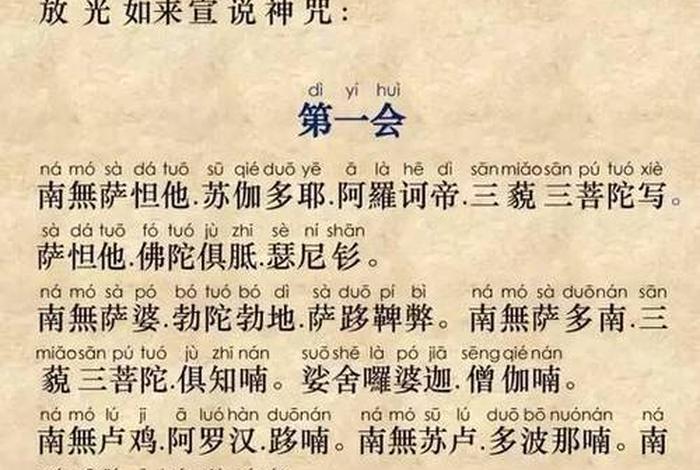 放光如来宣说神咒：
dì yí huì
第一会
ná mó sà dá tuō sū qié duō yē ā là hē dì sān miǎo sān pú tuó xiè
南無萨怛他.苏伽多耶.阿羅诃帝.三藐三菩陀写。
sà dá tuō fó tuó jù zhi sè ní shān
萨怛他.佛陀俱胝.瑟尼钐。
ná mó sà pó bó tuó bó dì sà duō pí bì ná mó sà duō nán sān
南無萨婆.勃陀勃地.萨跢鞞弊。南無萨多南.三
miǎo sān pú tuó jù zhi nán suō shě là pó jiā sēng qié nán
藐三菩陀.俱知喃。娑舍囉婆迦.僧伽喃。
ná mó lú ji ā luó hàn duō nán ná mó sū lú duō bō nuó nán ná
南無卢鸡.阿罗汉.跢喃。南無苏卢.多波那喃。南